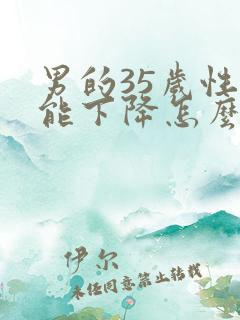 男的35歲性
能下降怎麼
伊尔
未经同意禁止转载